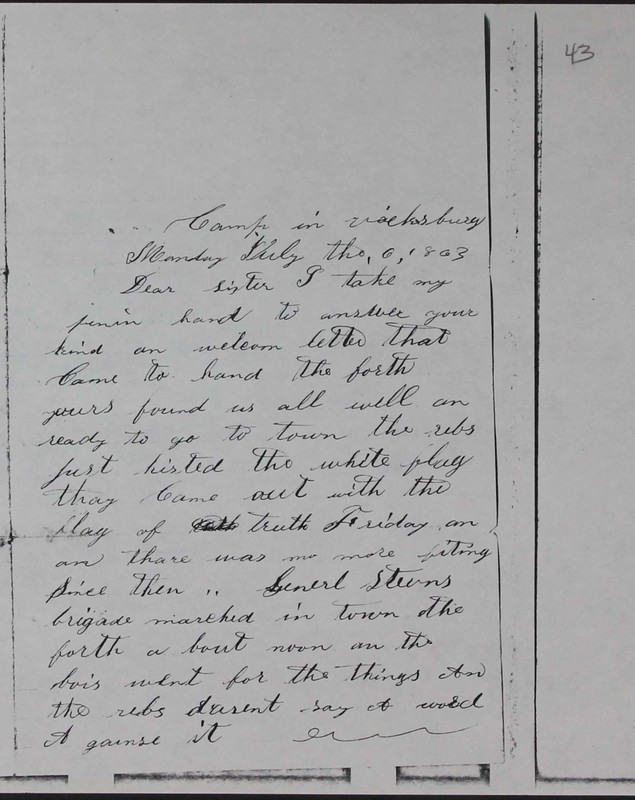 43
Camp in vicksburg
Monday July the, 6, 1863
Dear sister I take my
penin hand to answer your
kind an welcom letter that
Came to hand the forth
yours found us all well an
ready to go to town the rebs
Just histed the white plag
thay Came out with the
flag of truth Friday an
an thare was no more fiting
Since then .. Generl Stevns
brigade marched in town the
forth a bout noon an the
bois went for the things An
the rebs daresent say A word
A gainse it